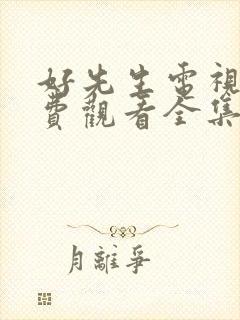 好先生電視
費觀看全集
月離爭